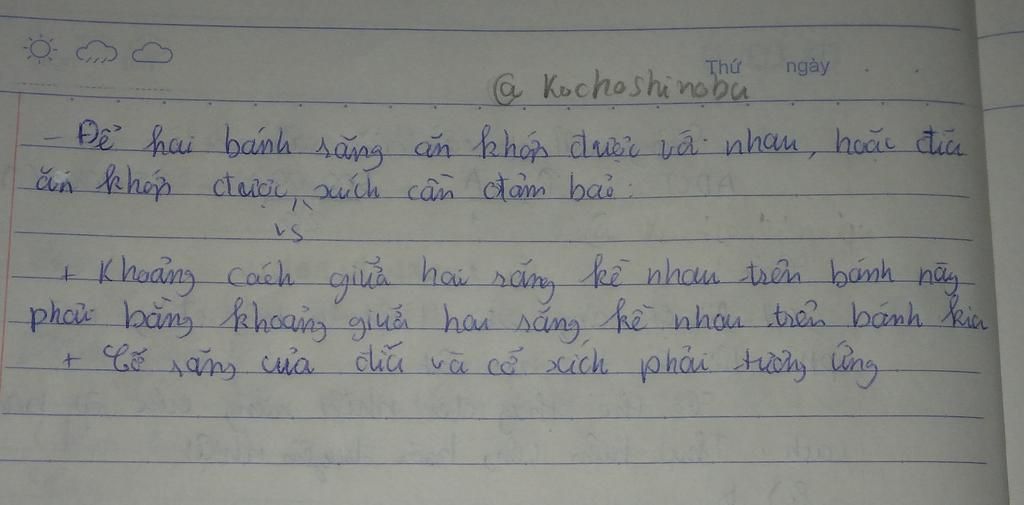 Thứ ngày
@ Kochoshinobu
- Để hai bánh răng ăn khớp được với nhau, hoặc đĩa
ăn khớp được, xích cần đảm bảo:
vs
+ Khoảng cách giữa hai răng kề nhau trên bánh này
phải bằng khoảng giữa hai răng kề nhau trên bánh kia
+ Cỡ răng của đĩa và cỡ xích phải tương ứng